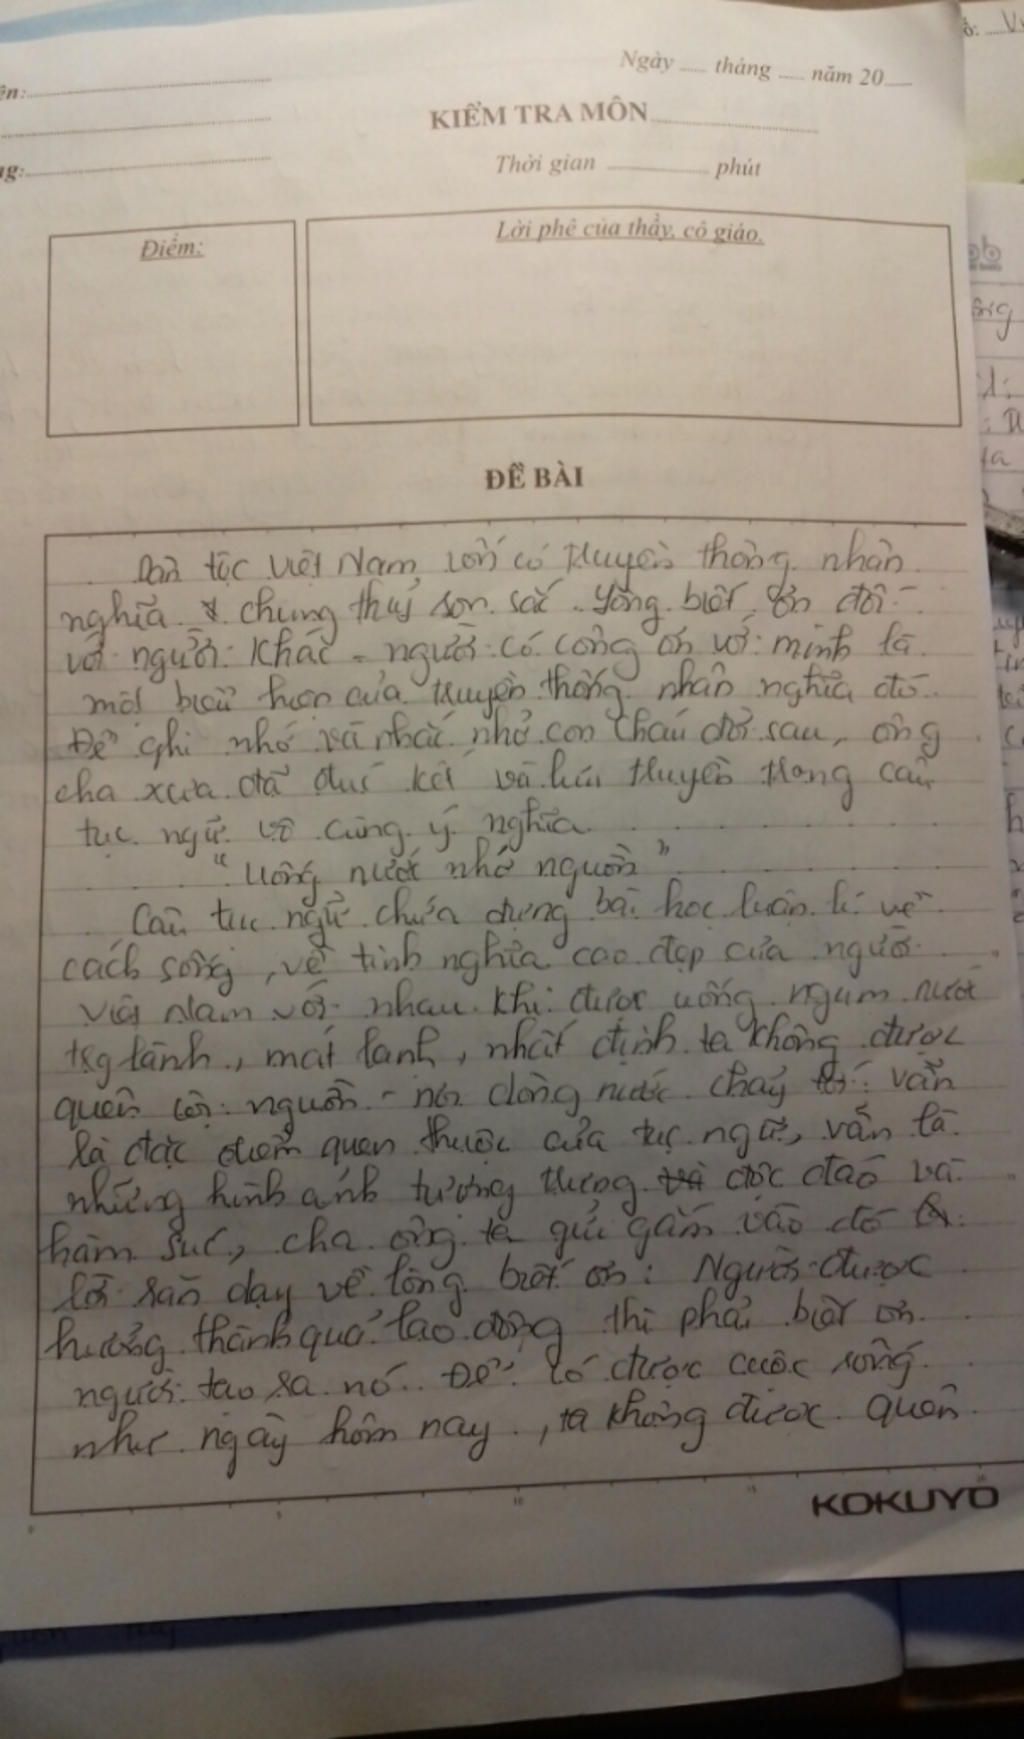 Ngày ..... tháng ..... năm 20.....
ên:
KIỂM TRA MÔN
Thời gian ............ phút
ng:
Điểm:
Lời phê của thầy, cô giáo.
ĐỀ BÀI
Dân tộc Việt Nam vốn có truyền thống nhân
nghĩa chung thuỷ son sắt. Lòng biết ơn đối
với người khác - người có công ơn với mình là
một biểu hiện của truyền thống nhân nghĩa đó.
Để ghi nhớ và nhắc nhở con cháu đời sau, ông
cha xưa đã đúc kết và lưu truyền trong câu
tục ngữ vô cùng ý nghĩa
"Uống nước nhớ nguồn"
Câu tục ngữ chứa đựng bài học luân lí về
cách sống, về tình nghĩa cao đẹp của người
Việt Nam với nhau. Khi được uống ngụm nước
lành, mát lạnh, nhất định ta không được
quên cội nguồn - nơi dòng nước chảy vẫn
là đặc điểm quen thuộc của tục ngữ, vẫn là
những hình ảnh tượng trưng độc đáo và
hàm súc, cha ông ta gửi gắm vào đó
lời răn dạy về lòng biết ơn: Người được
hưởng thành quả lao động thì phải biết ơn
người tạo ra nó. Để có được cuộc sống
như ngày hôm nay, ta không được quên
KOKUYO